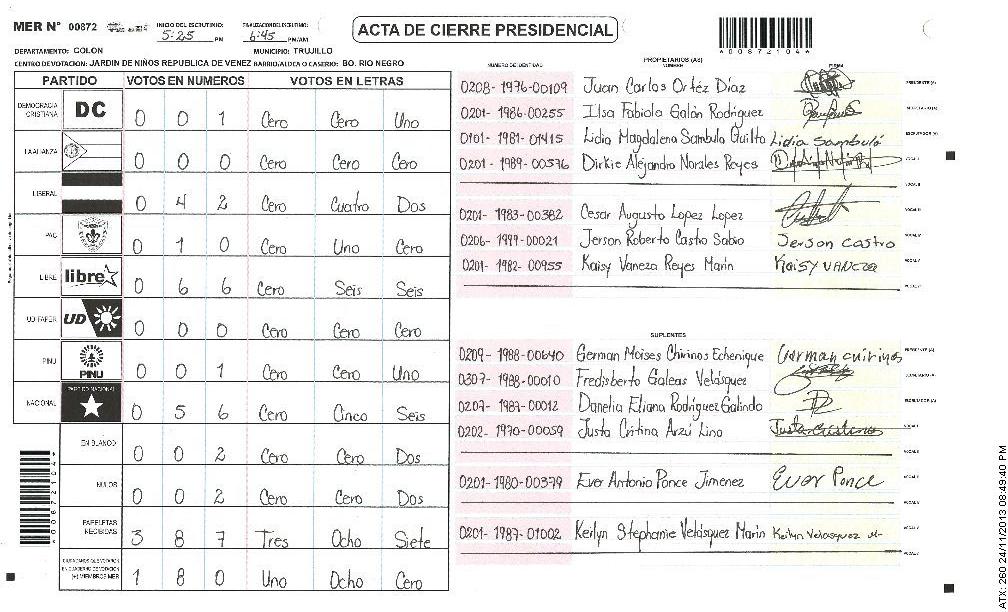 MER N° 00872 INICIO DEL ESCRUTINIO: 5:25 PM FINALIZACION DEL ESCRUTINIO: 6:45 PM/AM
ACTA DE CIERRE PRESIDENCIAL
*00872104*
DEPARTAMENTO: COLON MUNICIPIO: TRUJILLO
CENTRO DE VOTACION: JARDIN DE NIÑOS REPUBLICA DE VENEZ BARRIO/ALDEA O CASERIO: BO. RIO NEGRO
PARTIDO VOTOS EN NUMEROS VOTOS EN LETRAS
DEMOCRACIA CRISTIANA DC 0 0 1 Cero Cero Uno
LA ALIANZA 0 0 0 Cero Cero Cero
LIBERAL 0 4 2 Cero Cuatro Dos
PAC 0 1 0 Cero Uno Cero
LIBRE libre 0 6 6 Cero Seis Seis
UD/FAPER UD 0 0 0 Cero Cero Cero
PINU PINU 0 0 1 Cero Cero Uno
NACIONAL PARTIDO NACIONAL 0 5 6 Cero Cinco Seis
EN BLANCO 0 0 2 Cero Cero Dos
NULOS 0 0 2 Cero Cero Dos
PAPELETAS RECIBIDAS 3 8 7 Tres Ocho Siete
CIUDADANOS QUE VOTARON EN CUADERNO DE VOTACION (+) MIEMBROS MER 1 8 0 Uno Ocho Cero
*00872104*
PROPIETARIOS (AS)
NUMERO DE IDENTIDAD NOMBRE FIRMA
0208-1976-00109 Juan Carlos Ortéz Díaz PRESIDENTE (A)
0201-1986-00255 Ilsa Fabiola Galón Rodríguez SECRETARIO (A)
0101-1981-01415 Lidia Magdalena Sambula Guilto Lidia Sambuló ESCRUTADOR (A)
0201-1989-00576 Dirkie Alejandro Norales Reyes VOCAL I
VOCAL II
0201-1983-00382 Cesar Augusto Lopez Lopez VOCAL III
0206-1999-00021 Jerson Roberto Castro Sabio Jerson Castro VOCAL IV
0201-1982-00955 Kaisy Vaneza Reyes Marin Kaisy Vaneza VOCAL V
SUPLENTES
0209-1988-00640 German Moises Chirinos Echenique German Chirinos PRESIDENTE (A)
0307-1988-00010 Fredisberto Galeas Velásquez SECRETARIO (A)
0207-1987-00012 Danelia Eliana Rodríguez Galindo ESCRUTADOR (A)
0202-1970-00059 Justa Critina Arzú Lino Justa Cristina VOCAL I
VOCAL II
0201-1980-00379 Ever Antonio Ponce Jimenez Ever Ponce
0201-1987-01002 Keilyn Stephanie Velásquez Marin Keilyn Velasquez M-
ATX: 260 24/11/2013 08:49:40 PM